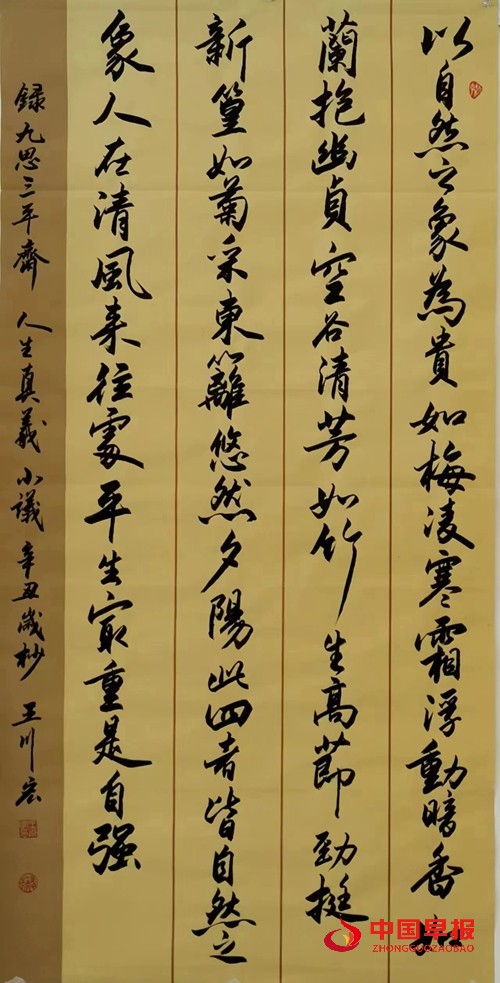 以自然之象為貴如梅凌寒霜浮動暗香如
蘭抱幽貞空谷清芳如竹生高莭勁挺
新篁如菊采東籬悠然夕陽此四者皆自然之
象人在清風来往處平生㝡重是自强
録九思三平齋 人生真義 小議 辛丑歲杪 王川宏
中国早报
ZHONGGUOZAOBAO